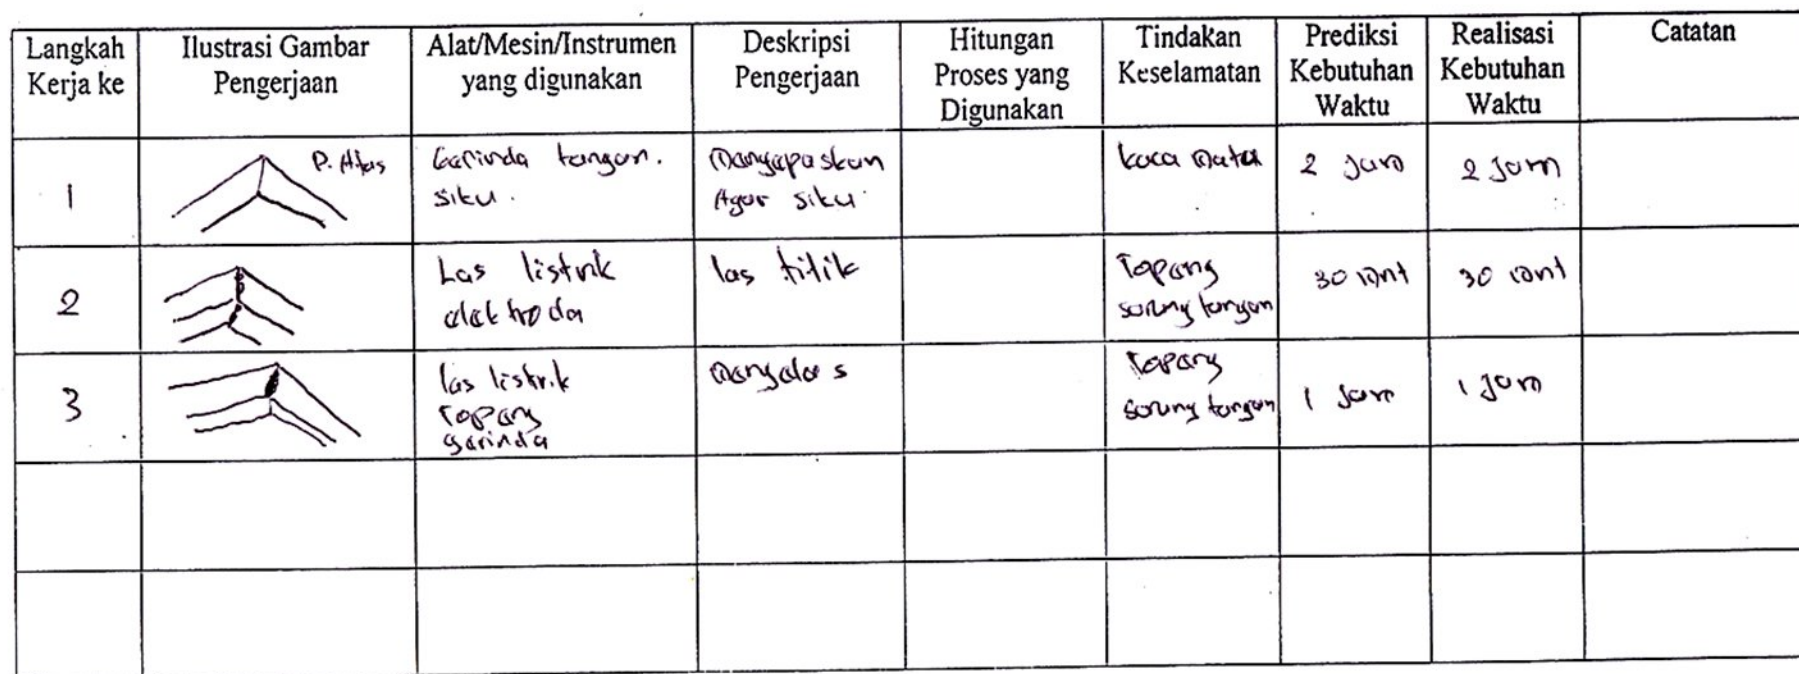 Langkah Kerja ke
Ilustrasi Gambar Pengerjaan
Alat/Mesin/Instrumen yang digunakan
Deskripsi Pengerjaan
Hitungan Proses yang Digunakan
Tindakan Keselamatan
Prediksi Kebutuhan Waktu
Realisasi Kebutuhan Waktu
Catatan
1
P. Atas
Garinda tangan.
siku.
Mangapaskan
Agar siku
kaca mata
2 Jam
2 Jam
2
Las listrik
elektroda
las titik
Topang
sarung tangan
30 mnt
30 mnt
3
las listrik
Topang
garinda
mangalas
Topang
sarung tangan
1 Jam
1 Jam